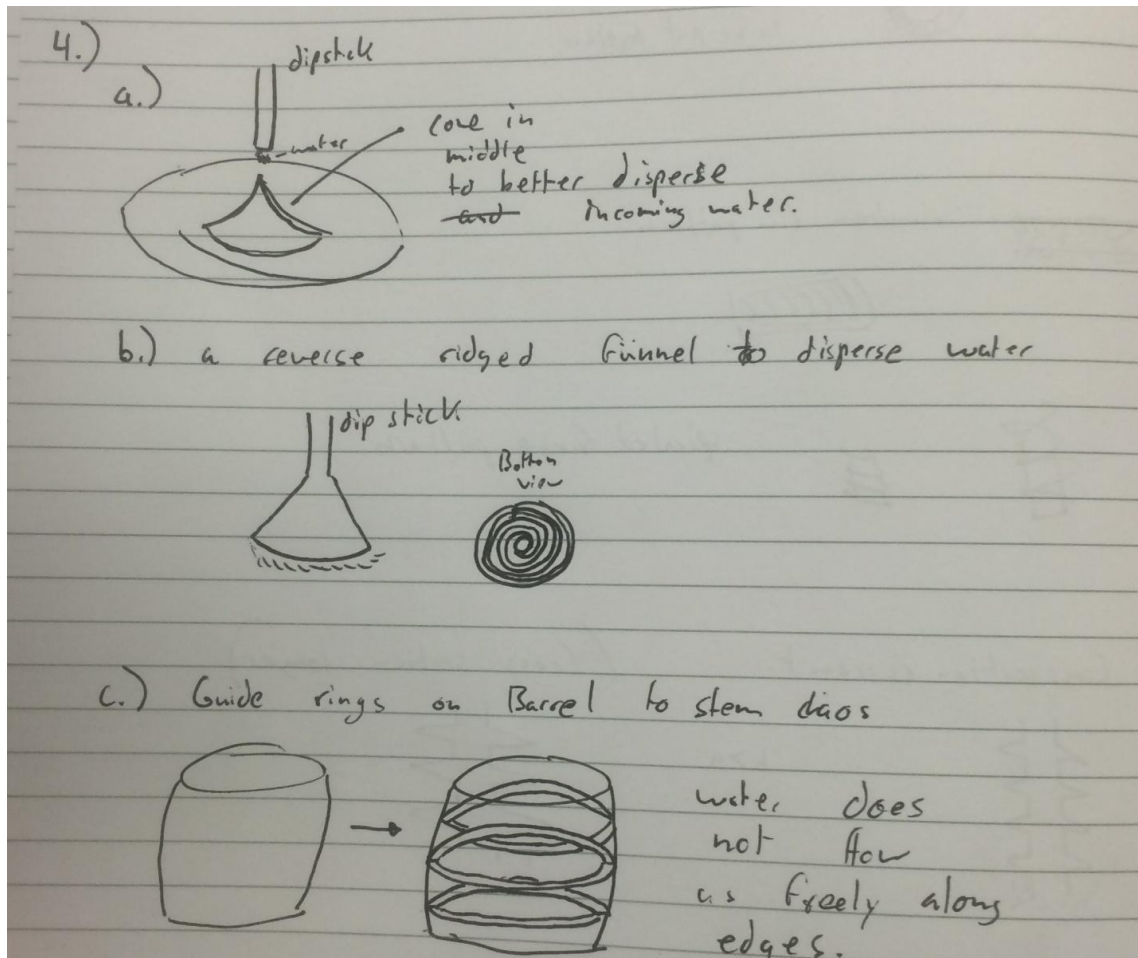 4.)
a.)
dipstick
water
cone in
middle
to better disperse
and incoming water.
b.) a reverse ridged funnel to disperse water
dip stick
Bottom
view
c.) Guide rings on Barrel to stem chaos
water does
not flow
as freely along
edges.